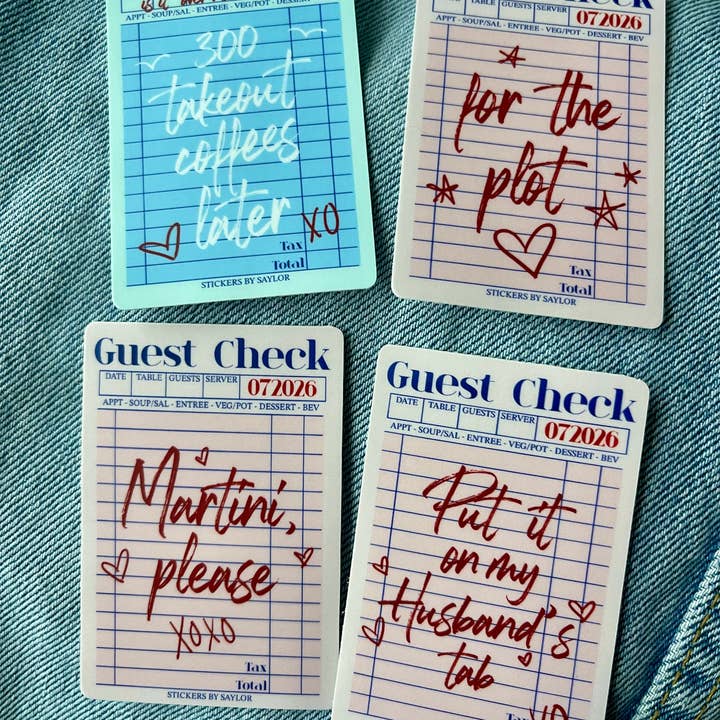 is it over
APPT - SOUP/SAL - ENTREE - VEG/POT - DESSERT - BEV
300
takeout
coffees
later
XO
Tax
Total
STICKERS BY SAYLOR
Check
DATE TABLE GUESTS SERVER 072026
APPT - SOUP/SAL - ENTREE - VEG/POT - DESSERT - BEV
for the
plot
Tax
Total
STICKERS BY SAYLOR
Guest Check
DATE TABLE GUESTS SERVER 072026
APPT - SOUP/SAL - ENTREE - VEG/POT - DESSERT - BEV
Martini,
please
XOXO
Tax
Total
STICKERS BY SAYLOR
Guest Check
DATE TABLE GUESTS SERVER 072026
APPT - SOUP/SAL - ENTREE - VEG/POT - DESSERT - BEV
Put it
on my
Husband's
tab
Tax
XO